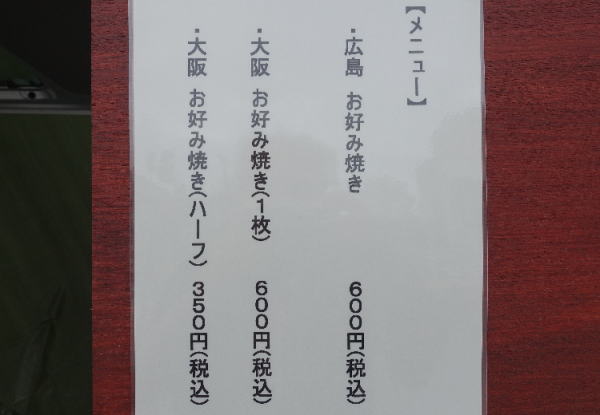 【メニュー】
・広島 お好み焼き 600円(税込)
・大阪 お好み焼き(1枚) 600円(税込)
・大阪 お好み焼き(ハーフ) 350円(税込)